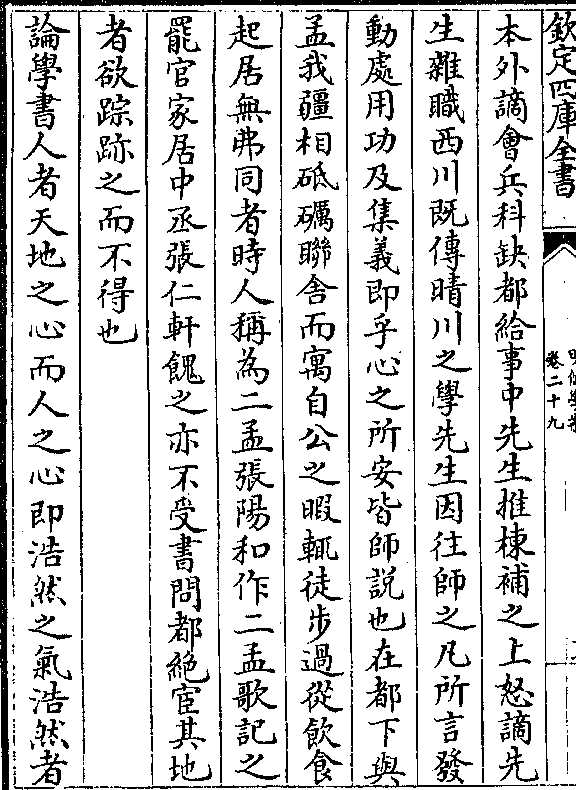 欽定四庫全書
卷二十九
本外謫會兵科缺都給事中先生推棟補之上怒謫先
生雜職西川既傳晴川之學先生因往師之凡所言發
動處用功及集義即乎心之所安皆師説也在都下與
孟我疆相砥礪聯舍而寓自公之暇輒徒步過從飲食
起居無弗同者時人稱為二孟張陽和作二孟歌記之
罷官家居中丞張仁軒餽之亦不受書問都絶宦其地
者欲踪跡之而不得也
論學書人者天地之心而人之心即浩然之氣浩然者